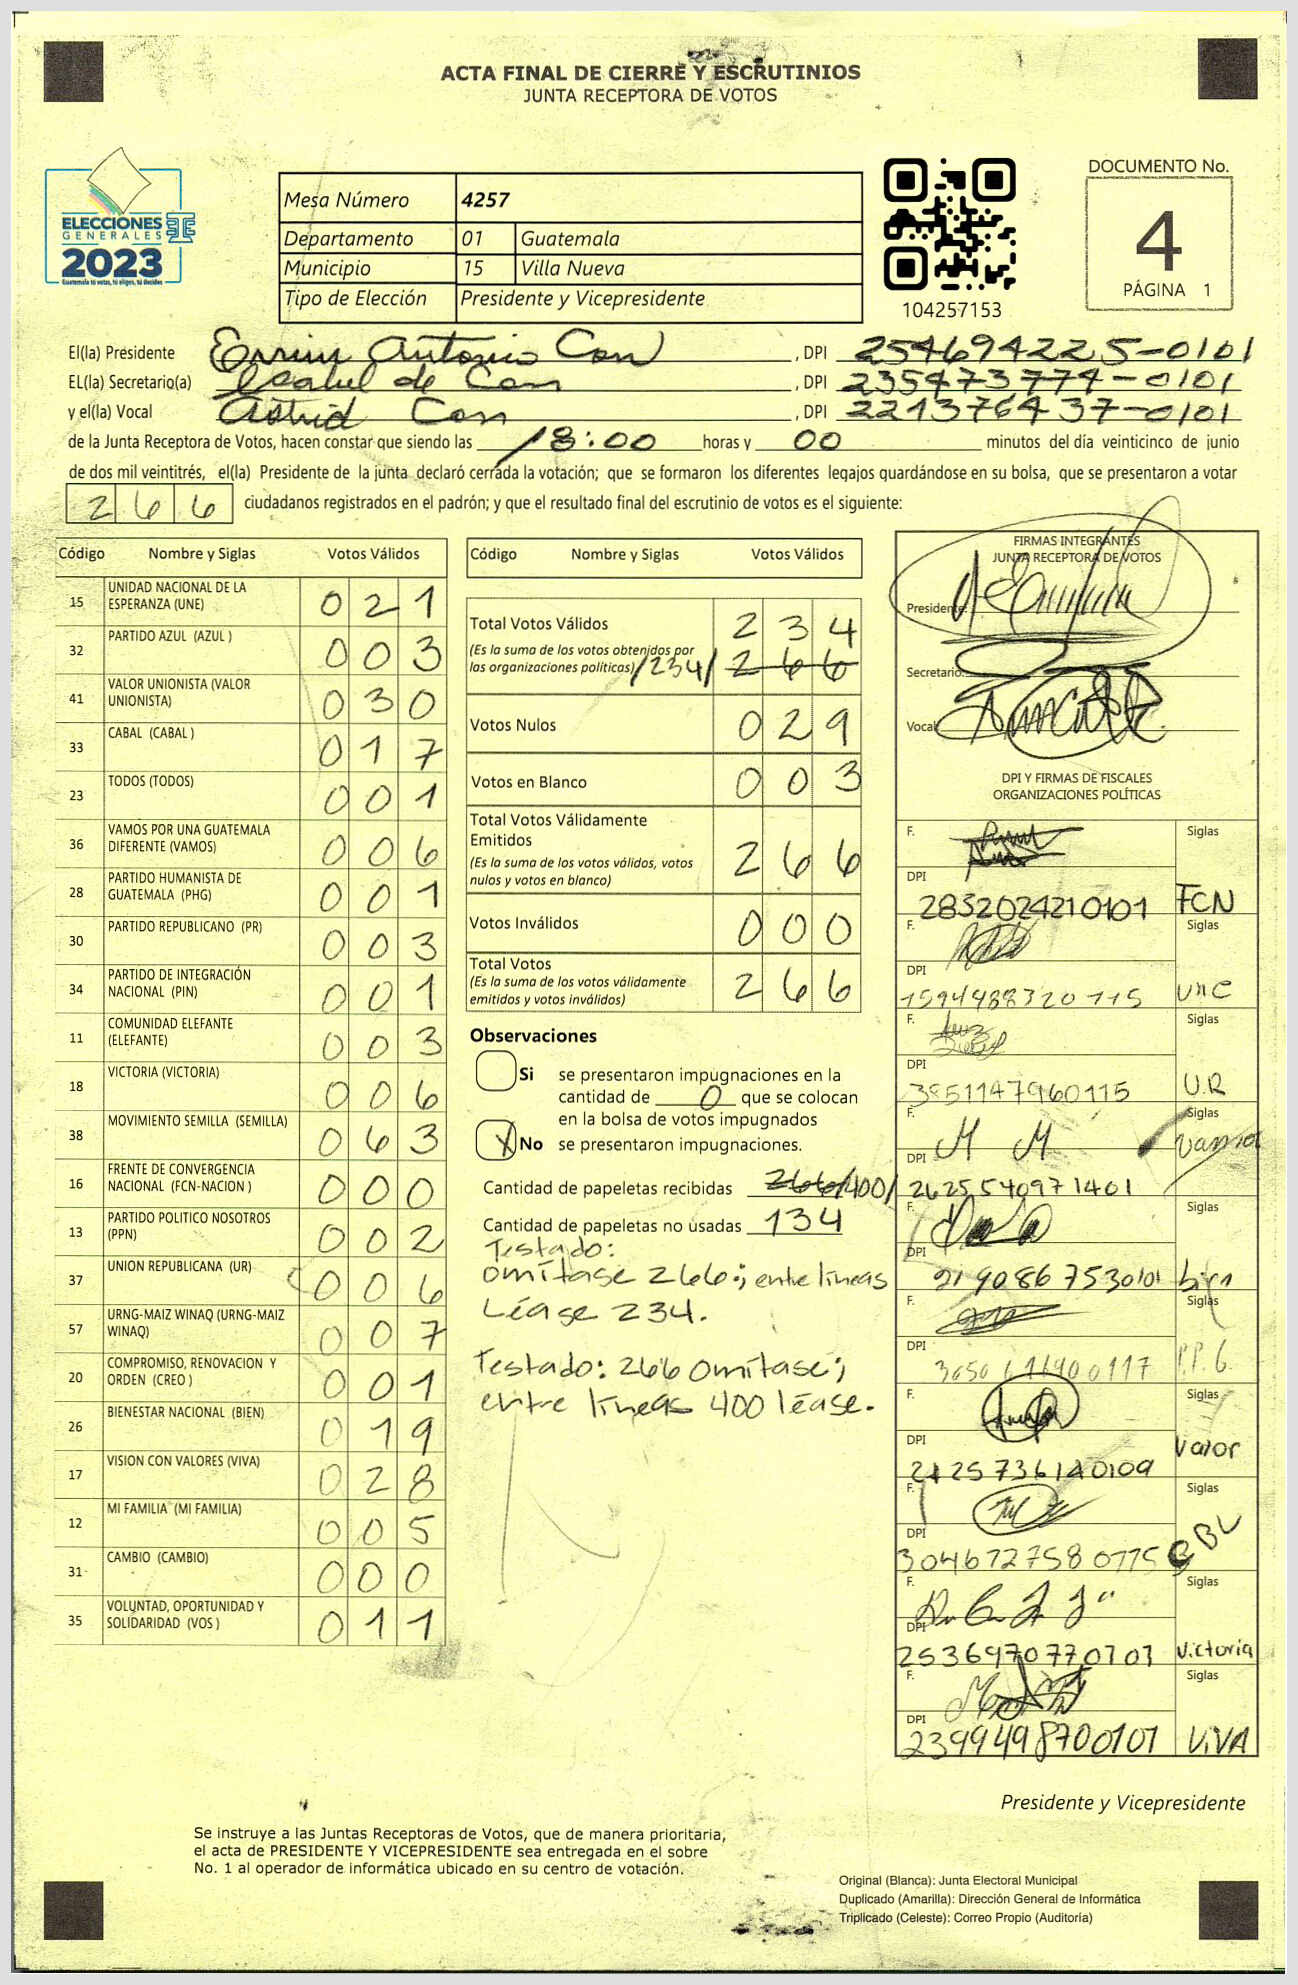 ACTA FINAL DE CIERRE Y ESCRUTINIOS
JUNTA RECEPTORA DE VOTOS
ELECCIONES
GENERALES
2023
Guatemala tú votas, tú eliges, tú decides
Mesa Número 4257
Departamento 01 Guatemala
Municipio 15 Villa Nueva
Tipo de Elección Presidente y Vicepresidente
104257153
DOCUMENTO No.
4
PÁGINA 1
El(la) Presidente Antonio Con , DPI 254694225-0101
EL(la) Secretario(a) de Con , DPI 235473774-0101
y el(la) Vocal Astrid Con , DPI 221376437-0101
de la Junta Receptora de Votos, hacen constar que siendo las 18:00 horas y 00 minutos del día veinticinco de junio
de dos mil veintitrés, el(la) Presidente de la junta declaró cerrada la votación; que se formaron los diferentes legajos quardándose en su bolsa, que se presentaron a votar
266 ciudadanos registrados en el padrón; y que el resultado final del escrutinio de votos es el siguiente:
Código Nombre y Siglas Votos Válidos
15 UNIDAD NACIONAL DE LA ESPERANZA (UNE) 021
32 PARTIDO AZUL (AZUL ) 003
41 VALOR UNIONISTA (VALOR UNIONISTA) 030
33 CABAL (CABAL ) 017
23 TODOS (TODOS) 001
36 VAMOS POR UNA GUATEMALA DIFERENTE (VAMOS) 006
28 PARTIDO HUMANISTA DE GUATEMALA (PHG) 001
30 PARTIDO REPUBLICANO (PR) 003
34 PARTIDO DE INTEGRACIÓN NACIONAL (PIN) 001
11 COMUNIDAD ELEFANTE (ELEFANTE) 003
18 VICTORIA (VICTORIA) 006
38 MOVIMIENTO SEMILLA (SEMILLA) 063
16 FRENTE DE CONVERGENCIA NACIONAL (FCN-NACION ) 000
13 PARTIDO POLITICO NOSOTROS (PPN) 002
37 UNION REPUBLICANA (UR) 006
57 URNG-MAIZ WINAQ (URNG-MAIZ WINAQ) 007
20 COMPROMISO, RENOVACION Y ORDEN (CREO ) 001
26 BIENESTAR NACIONAL (BIEN) 019
17 VISION CON VALORES (VIVA) 028
12 MI FAMILIA (MI FAMILIA) 005
31 CAMBIO (CAMBIO) 000
35 VOLUNTAD, OPORTUNIDAD Y SOLIDARIDAD (VOS ) 011
Código Nombre y Siglas Votos Válidos
Total Votos Válidos 234
(Es la suma de los votos obtenidos por
las organizaciones políticas) /234/ 266
Votos Nulos 029
Votos en Blanco 003
Total Votos Válidamente
Emitidos 266
(Es la suma de los votos válidos, votos
nulos y votos en blanco)
Votos Inválidos 000
Total Votos 266
(Es la suma de los votos válidamente
emitidos y votos inválidos)
Observaciones
Si se presentaron impugnaciones en la
cantidad de 0 que se colocan
en la bolsa de votos impugnados
X No se presentaron impugnaciones.
Cantidad de papeletas recibidas 266/400/
Cantidad de papeletas no usadas 134
Testado:
omítase 266; entre líneas
Léase 234.
Testado: 266 omítase;
entre líneas 400 léase.
FIRMAS INTEGRANTES
JUNTA RECEPTORA DE VOTOS
Presidente:
Secretario:
Vocal
DPI Y FIRMAS DE FISCALES
ORGANIZACIONES POLÍTICAS
F. Siglas
DPI 2832024210101 FCN
F. Siglas
DPI 1594988320115 UNE
F. Siglas
DPI 3851147960115 U.R
F. Siglas
DPI 2625540971401 Vamos
F. Siglas
DPI 2190867530101 bien
F. Siglas
DPI
F. Siglas
DPI 2425736140109 Valor
F. Siglas
DPI 3046727580115 CBL
F. Siglas
DPI 2536970770101 Victoria
F. Siglas
DPI 2399498700101 ViVA
Presidente y Vicepresidente
Se instruye a las Juntas Receptoras de Votos, que de manera prioritaria,
el acta de PRESIDENTE Y VICEPRESIDENTE sea entregada en el sobre
No. 1 al operador de informática ubicado en su centro de votación.
Original (Blanca): Junta Electoral Municipal
Duplicado (Amarilla): Dirección General de Informática
Triplicado (Celeste): Correo Propio (Auditoría)